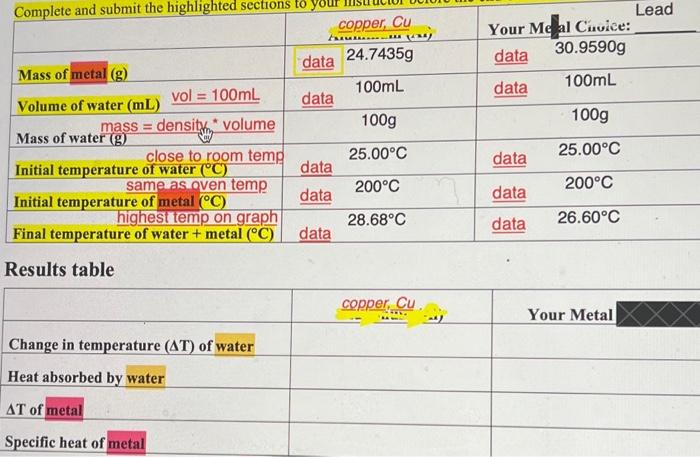 Complete and submit the highlighted sections to your
Lead
copper, Cu
Your Metal Choice:
data 24.7435g
data 30.9590g
Mass of metal (g)
100mL
data 100mL
vol = 100mL
Volume of water (mL)
data
100g
100g
mass = density * volume
Mass of water (g)
close to room temp
25.00°C
data 25.00°C
Initial temperature of water (°C)
data
same as oven temp
200°C
200°C
Initial temperature of metal (°C)
data
data
highest temp on graph
28.68°C
data 26.60°C
Final temperature of water + metal (°C)
data
Results table
copper, Cu
Your Metal
Change in temperature (ΔT) of water
Heat absorbed by water
ΔT of metal
Specific heat of metal